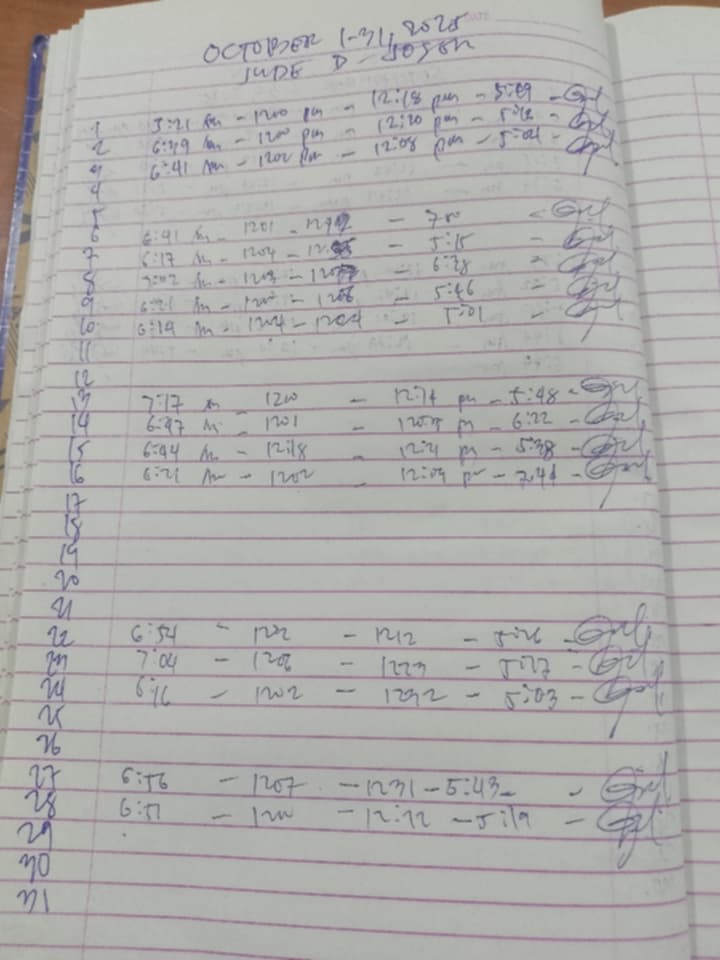 OCTOBER 1-31, 2025
JUDE D. JOSEH
1 5:21 Am - 1200 pm - 12:18 pm - 5:09 -
2 6:49 Am - 1200 pm - 12:20 pm - 5:12 -
3 6:41 Am - 1202 pm - 12:08 pm - 5:04 -
4
5
6 6:41 Am - 1201 - - 700 -
7 6:17 Am - 1204 - - 5:15 -
8 7:02 Am - 1203 - - 6:28 -
9 6:21 Am - 1202 - 1206 - 5:46 -
10 6:19 Am - 1204 - 1204 - 5:01 -
11
12
13 7:17 Am - 1200 - 12:14 pm - 5:48 -
14 6:47 Am - 1201 - pm - 6:22 -
15 6:44 Am - 12:18 - 12:21 pm - 5:38 -
16 6:21 Am - 1202 - 12:09 pm - 7:41 -
17
18
19
20
21
22 6:54 - 1202 - 1212 - 5:26 -
23 7:04 - 1206 - 1223 - 5:27 -
24 6:16 - 1202 - - 5:03 -
25
26
27 6:56 - 1207 - 1231 - 5:43 -
28 6:51 - 1200 - 12:22 - 5:19 -
29
30
31